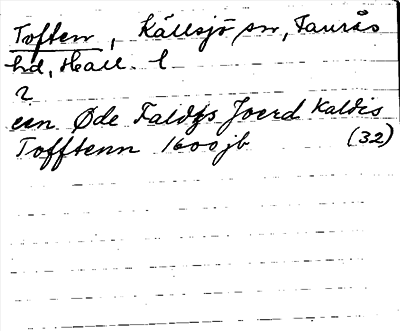 Toften, Källsjö sn, Faurås
hd, Hall. l
2
een Øde Faldgs Joerd Kaldis
Tofftenn 1600 jb (32)